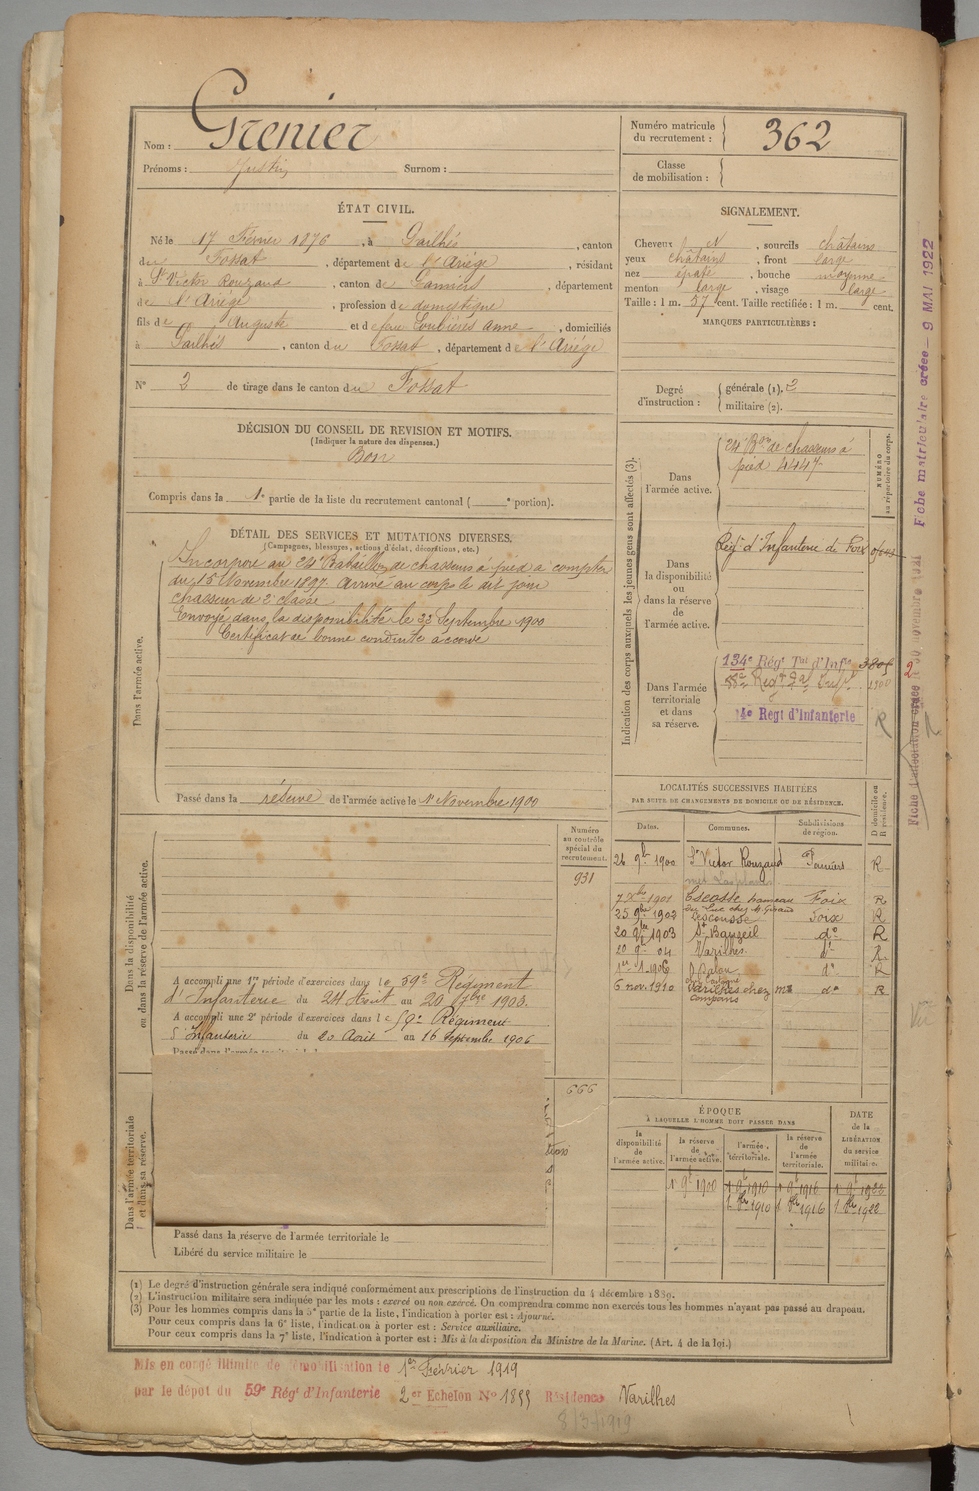 Nom : Grenier
Prénoms : Justin Surnom :
Numéro matricule
du recrutement : 362
Classe
de mobilisation :
ÉTAT CIVIL.
Né le 17 Février 1876, à Pailhés, canton
du Fossat, département de l'Ariége, résidant
à St Victor Rouzaud, canton de Pamiers, département
de l'Ariége, profession de domestique
fils de Auguste et de feu Anne, domiciliés
à Pailhés, canton du Fossat, département de l'Ariége
N° 2 de tirage dans le canton du Fossat
SIGNALEMENT.
Cheveux N, sourcils châtains
yeux châtains, front large
nez épaté, bouche moyenne
menton large, visage large
Taille : 1 m. 57 cent. Taille rectifiée : 1 m. cent.
MARQUES PARTICULIÈRES :
Degré
d'instruction :
générale (1). 2
militaire (2).
DÉCISION DU CONSEIL DE REVISION ET MOTIFS.
(Indiquer la nature des dispenses.)
Bon
Compris dans la 1e partie de la liste du recrutement cantonal ( e portion).
DÉTAIL DES SERVICES ET MUTATIONS DIVERSES.
(Campagnes, blessures, actions d'éclat, décorations, etc.)
Dans l'armée active.
Incorporé au 24e Bataillon de chasseurs à pied à compter
du 15 Novembre 1897. Arrivé au corps le dit jour
chasseur de 2e classe
Envoyé dans la disponibilité le Septembre 1900
Certificat de bonne conduite accordé
Passé dans la réserve de l'armée active le 1er Novembre 1900
Indication des corps auxquels les jeunes gens sont affectés (3).
NUMÉRO
au répertoire du corps.
Dans
l'armée active.
24e Bon de chasseurs à
pied 4447
Dans
la disponibilité
ou
dans la réserve
de
l'armée active.
Régt d'Infanterie de Foix
Dans l'armée
territoriale
et dans
sa réserve.
134e Régt Tal d'Infie
14e Regt d'Infanterie
R
Fiche matriculaire créée - 9 MAI 1922
LOCALITÉS SUCCESSIVES HABITÉES
PAR SUITE DE CHANGEMENTS DE DOMICILE OU DE RÉSIDENCE.
Dates. Communes. Subdivisions
de région. D domicile ou
R résidence.
26 9bre 1900 St Victor Rouzaud Pamiers R
7 Xbre 1901 Escosse hameau Foix R
25 9bre 1902 Lescousse Foix R
20 9bre 1903 St Bauzeil do R
20 9bre 04 Varilhes do R
1er 1 1906 do R
6 nov. 1910 Varilhes chez do R
Dans la disponibilité
ou dans la réserve de l'armée active.
Numéro
au contrôle
spécial du
recrutement.
931
A accompli une 1re période d'exercices dans le 59e Régiment
d'Infanterie du 24 Août au 20 7bre 1903.
A accompli une 2e période d'exercices dans le 59e Régiment
d'Infanterie du 20 Août au 16 Septembre 1906
666
Dans l'armée territoriale
et dans sa réserve.
Passé dans la réserve de l'armée territoriale le
Libéré du service militaire le
ÉPOQUE
À LAQUELLE L'HOMME DOIT PASSER DANS
DATE
de la
LIBÉRATION
du service
militaire.
la
disponibilité
de
l'armée active.
la réserve
de
l'armée active.
l'armée
territoriale.
la réserve
de
l'armée
territoriale.
1 9bre 1900 1 9bre 1910 1 9bre 1916 1 9bre 1922
1 8bre 1910 1 8bre 1916 1 8bre 1922
(1) Le degré d'instruction générale sera indiqué conformément aux prescriptions de l'instruction du 4 décembre 1889.
(2) L'instruction militaire sera indiquée par les mots : exercé ou non exercé. On comprendra comme non exercés tous les hommes n'ayant pas passé au drapeau.
(3) Pour les hommes compris dans la 5e partie de la liste, l'indication à porter est : Ajourné.
Pour ceux compris dans la 6e liste, l'indication à porter est : Service auxiliaire.
Pour ceux compris dans la 7e liste, l'indication à porter est : Mis à la disposition du Ministre de la Marine. (Art. 4 de la loi.)
Mis en congé illimité de démobilisation le 1er Février 1919
par le dépôt du 59e Régt d'Infanterie 2er Echelon N° 1855 Résidence Varilhes
8/3/1919